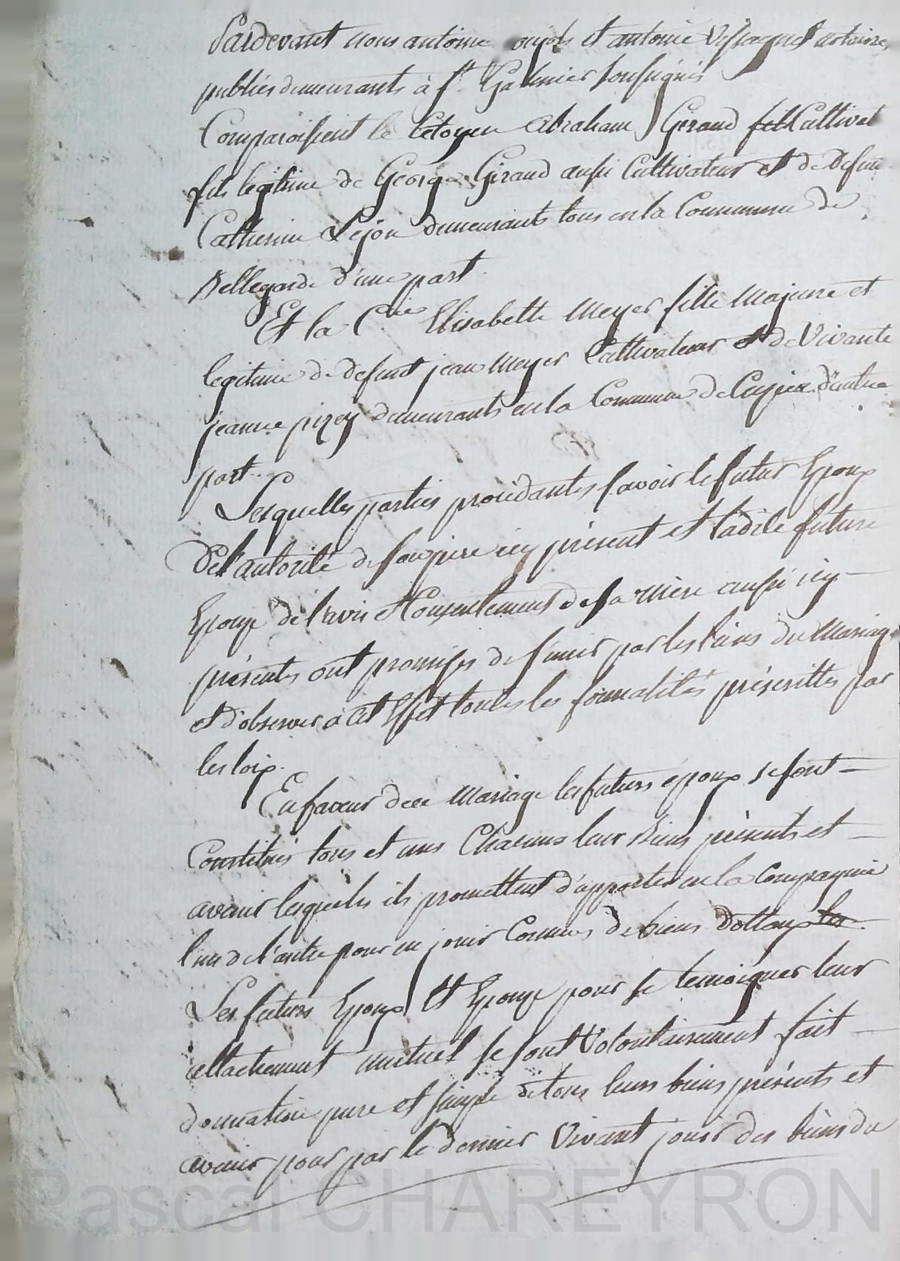 Pardevant nous antoine et antoine notaires
publics demeurants à St. Galmier soussignés
Comparoissent le Citoyen Abraham Giraud Cultivat
fils legitime de George Giraud aussi Cultivateur et de defunte
Catherine Lejon demeurant tous en la Commune de
Bellegarde d'une part.
Et la Cne Elisabette Meyer fille Majeure et
legitime de defunt jean Meyer Cultivateur et de Vivante
jeanne pizey demeurants en la Commune de Cuzieu d'autre
part.
Lesquelles parties procédantes savoir le futur Epoux
De l'autorité de son pere icy présent et ladite future
Epouse de l'avis et Consentement de sa Mère aussi icy
présente ont promises de s'unir par les liens du Mariage
et d'observer à cet Effet toutes les formalités préscrittes par
les loix.
En faveur de ce Mariage les futurs epoux se sont
Constitués tous et uns Chacuns leur Biens présents et
avenir lesquels ils promettent d'apporter en la Compagnie
l'un de l'autre pour en jouir Comme de biens dottaux
Les futurs Epoux Et Epouse pour se temoigner leur
attachement mutuel se sont Volontairement fait
donnation pure et simple de tous leurs biens présents et
avenir pour par le dernier Vivant jouir des biens du
Pascal CHAREYRON